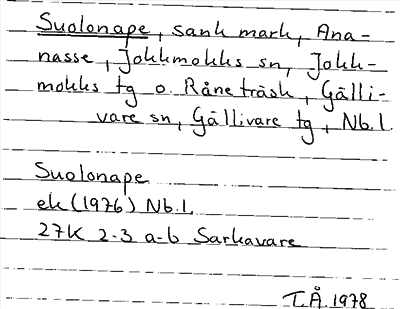 Suolonape, sank mark, Ana-
nasse, Jokkmokks sn, Jokk-
mokks tg o. Råneträsk, Gälli-
vare sn, Gällivare tg, Nb.l.
Suolonape
ek (1976) Nb.l.
27K 2-3 a-b Sarkavare
T.Å. 1978